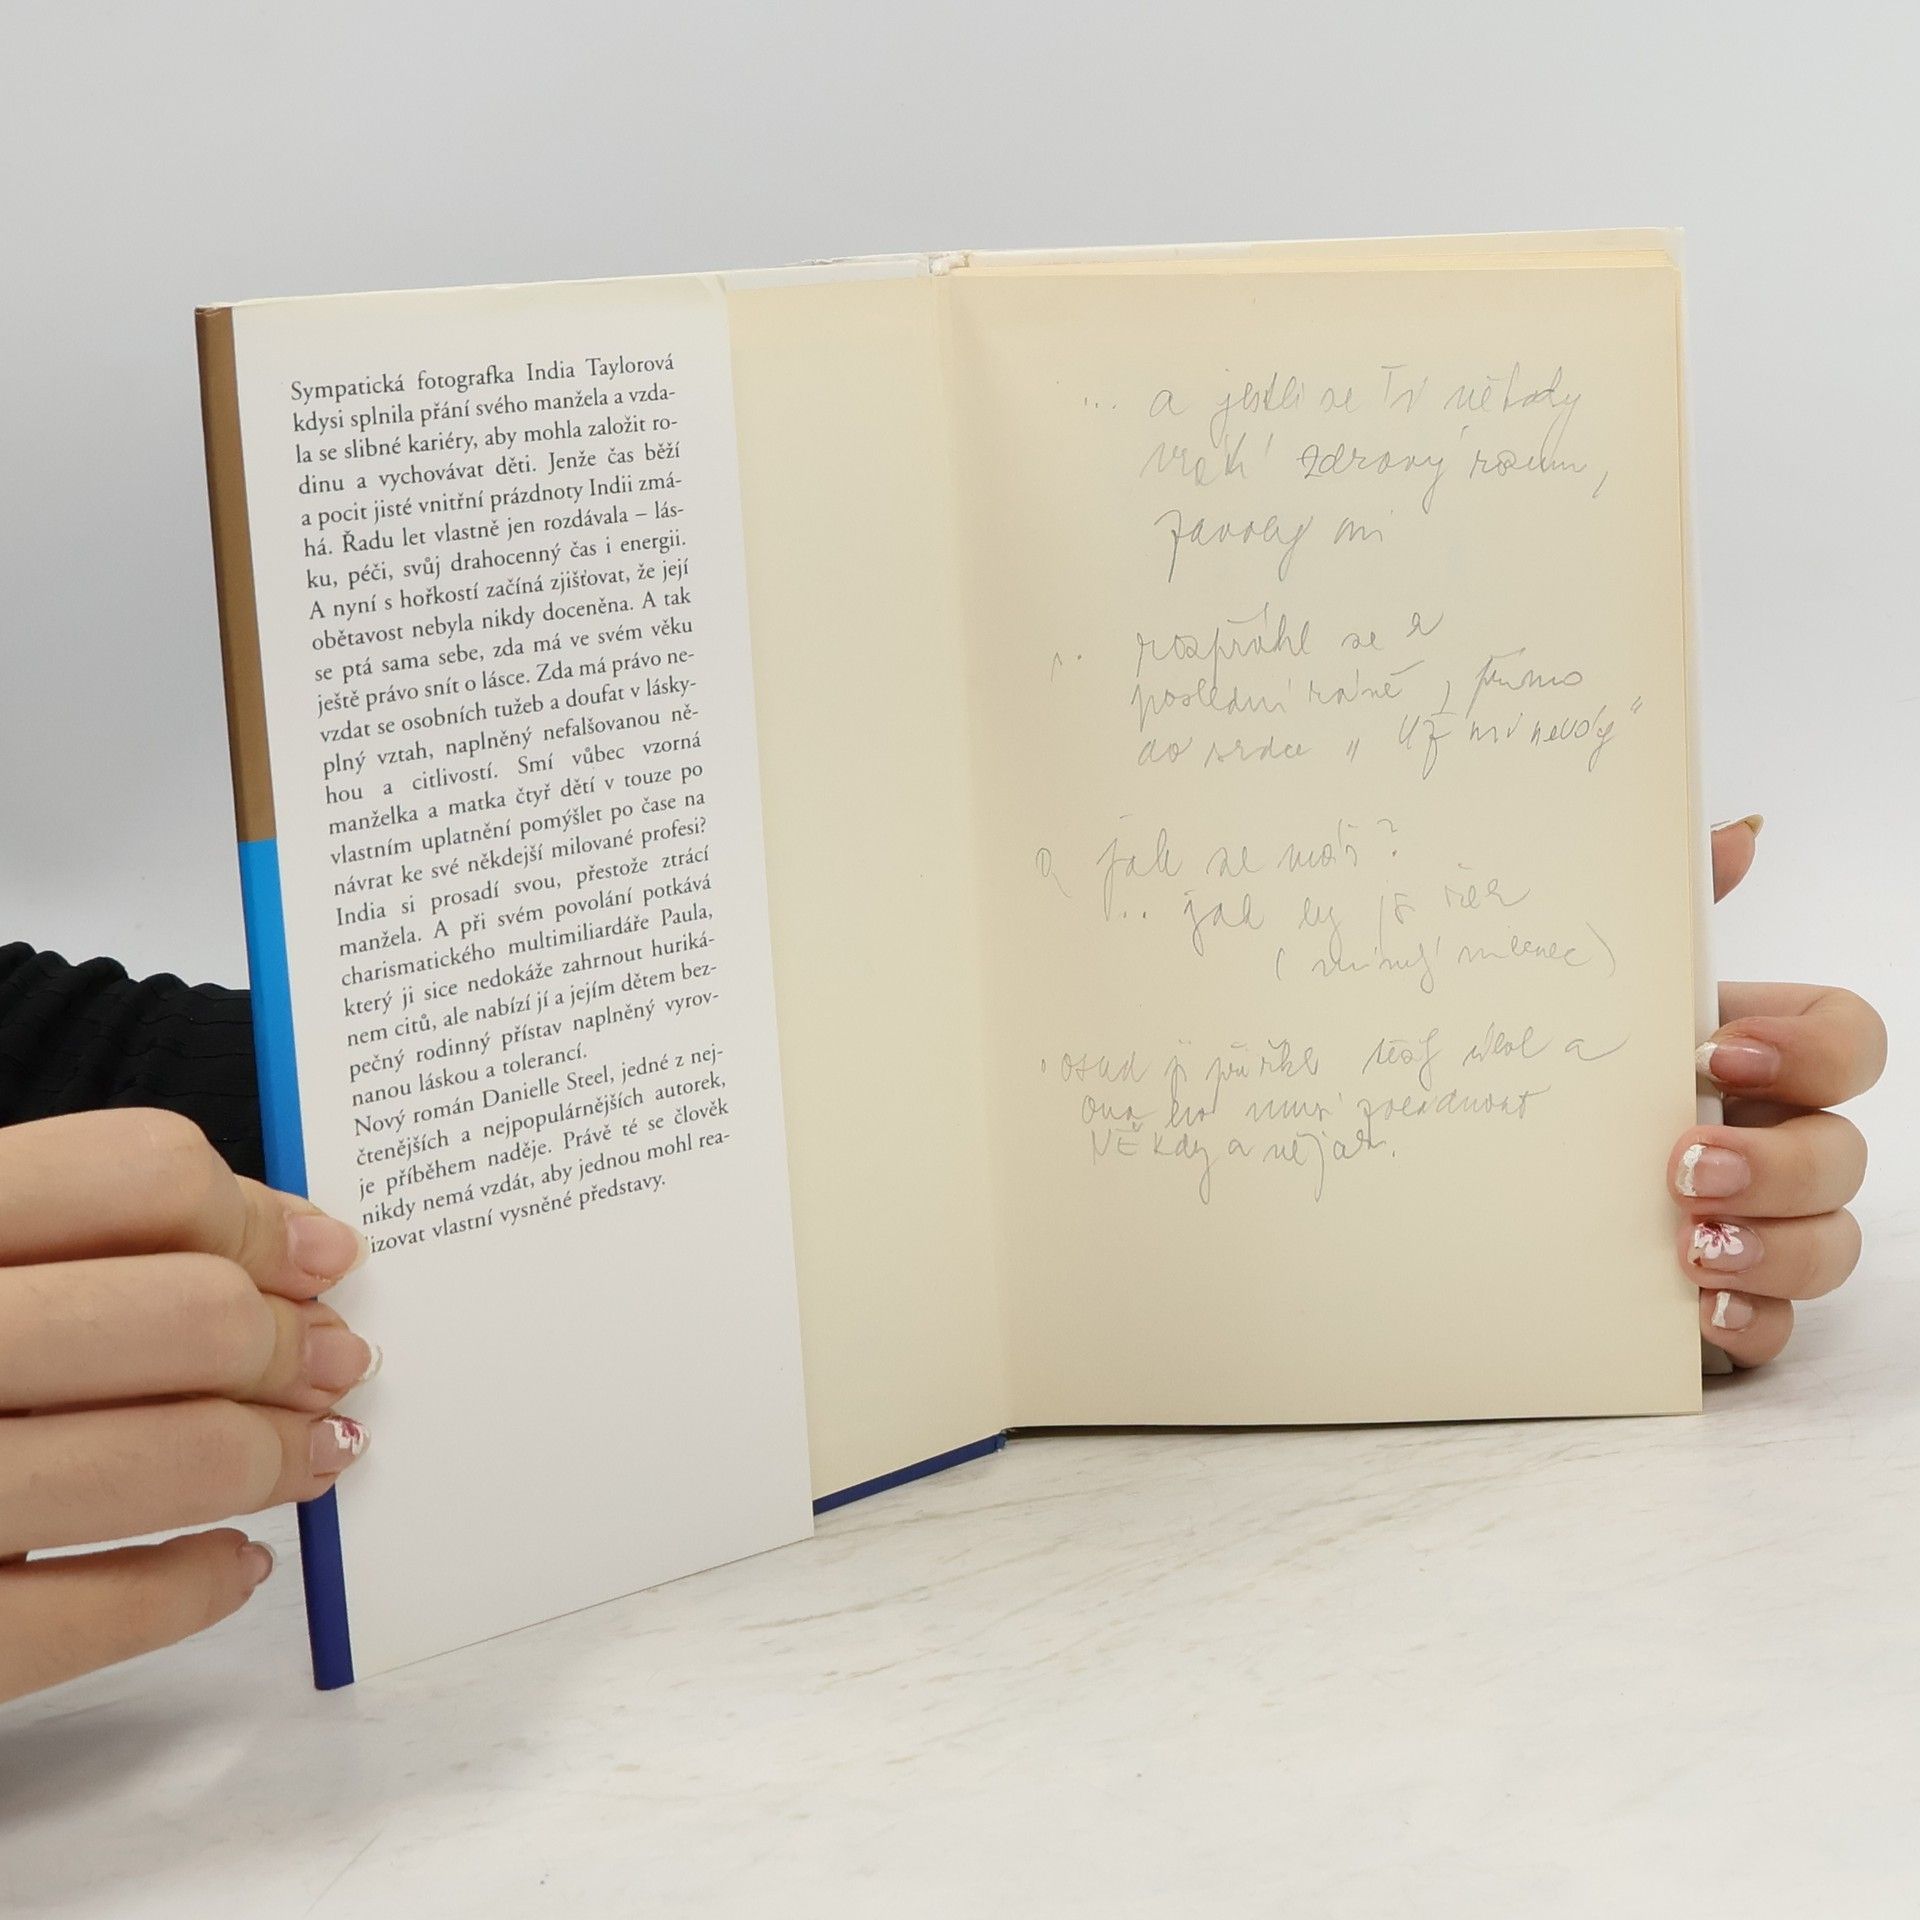 Sympatická fotografka India Taylorová
kdysi splnila přání svého manžela a vzda-
la se slibné kariéry, aby mohla založit ro-
dinu a vychovávat děti. Jenže čas běží
a pocit jisté vnitřní prázdnoty Indii zmá-
há. Řadu let vlastně jen rozdávala – lás-
ku, péči, svůj drahocenný čas i energii.
A nyní s hořkostí začíná zjišťovat, že její
obětavost nebyla nikdy doceněna. A tak
se ptá sama sebe, zda má ve svém věku
ještě právo snít o lásce. Zda má právo ne-
vzdat se osobních tužeb a doufat v lásky-
plný vztah, naplněný nefalšovanou ně-
hou a citlivostí. Smí vůbec vzorná
manželka a matka čtyř dětí v touze po
vlastním uplatnění pomýšlet po čase na
návrat ke své někdejší milované profesi?
India si prosadí svou, přestože ztrácí
manžela. A při svém povolání potkává
charismatického multimiliardáře Paula,
který ji sice nedokáže zahrnout huriká-
nem citů, ale nabízí jí a jejím dětem bez-
pečný rodinný přístav naplněný vyrov-
nanou láskou a tolerancí.
Nový román Danielle Steel, jedné z nej-
čtenějších a nejpopulárnějších autorek,
je příběhem naděje. Právě té se člověk
nikdy nemá vzdát, aby jednou mohl rea-
lizovat vlastní vysněné představy.
... a jestli se Ti někdy
vrátí zdravý rozum,
zavolej mi
rozpřáhl se k
poslední ráně, přímo
do srdce " Už mi nevolej "
jak se máš?
... jak by
( milenec )
osud jí přiřkl úkol a
ona ho musí zvládnout
NĚkdy a nějak.